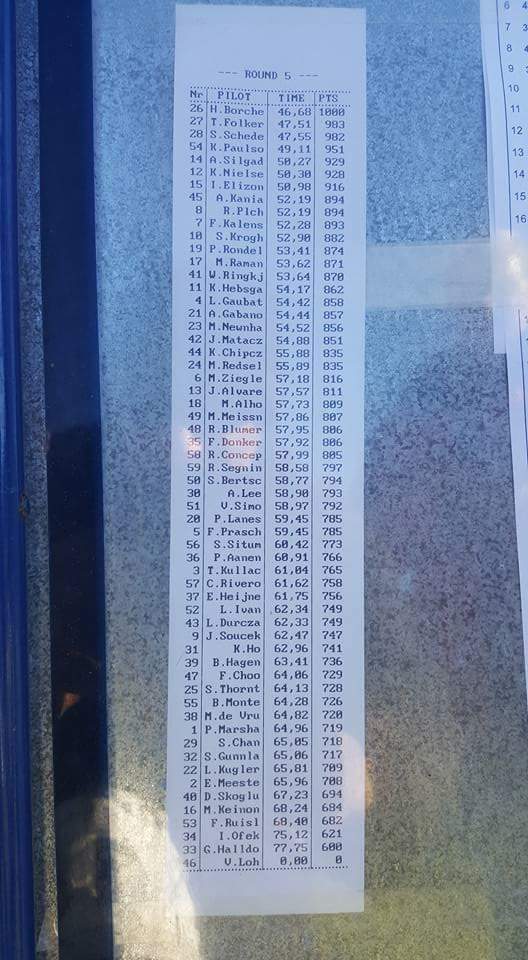 --- ROUND 5 ---
Nr PILOT TIME PTS
26 H.Borche 46,68 1000
27 T.Folker 47,51 983
28 S.Schede 47,55 982
54 K.Paulso 49,11 951
14 A.Silgad 50,27 929
12 K.Nielse 50,30 928
15 I.Elizon 50,98 916
45 A.Kania 52,19 894
8 R.Plch 52,19 894
7 F.Kalens 52,28 893
10 S.Krogh 52,90 882
19 P.Rondel 53,41 874
17 M.Raman 53,62 871
41 W.Ringkj 53,64 870
11 K.Hebsga 54,17 862
4 L.Gaubat 54,42 858
21 A.Gabano 54,44 857
23 M.Newnha 54,52 856
42 J.Matacz 54,88 851
44 K.Chipcz 55,88 835
24 M.Redsel 55,89 835
6 M.Ziegle 57,18 816
13 J.Alvare 57,57 811
18 M.Alho 57,73 809
49 M.Meissn 57,86 807
48 R.Blumer 57,95 806
35 F.Donker 57,92 806
58 R.Concep 57,99 805
59 R.Segnin 58,58 797
50 S.Bertsc 58,77 794
30 A.Lee 58,90 793
51 V.Simo 58,97 792
20 P.Lanes 59,45 785
5 F.Prasch 59,45 785
56 S.Situm 60,42 773
36 P.Aanen 60,91 766
3 T.Kullac 61,04 765
57 C.Rivero 61,62 758
37 E.Heijne 61,75 756
52 L.Ivan 62,34 749
43 L.Durcza 62,33 749
9 J.Soucek 62,47 747
31 K.Ho 62,96 741
39 B.Hagen 63,41 736
47 F.Choo 64,06 729
25 S.Thornt 64,13 728
55 B.Monte 64,28 726
38 M.de Vru 64,82 720
1 P.Marsha 64,96 719
29 S.Chan 65,05 718
32 S.Gunnla 65,06 717
22 L.Kugler 65,81 709
2 E.Meeste 65,96 708
40 D.Skoglu 67,23 694
16 M.Keinon 68,24 684
53 F.Ruisl 68,40 682
34 I.Ofek 75,12 621
33 G.Halldo 77,75 600
46 V.Loh 0,00 0
6 4
7 3
8
9
10
11
12
13
14
15
16